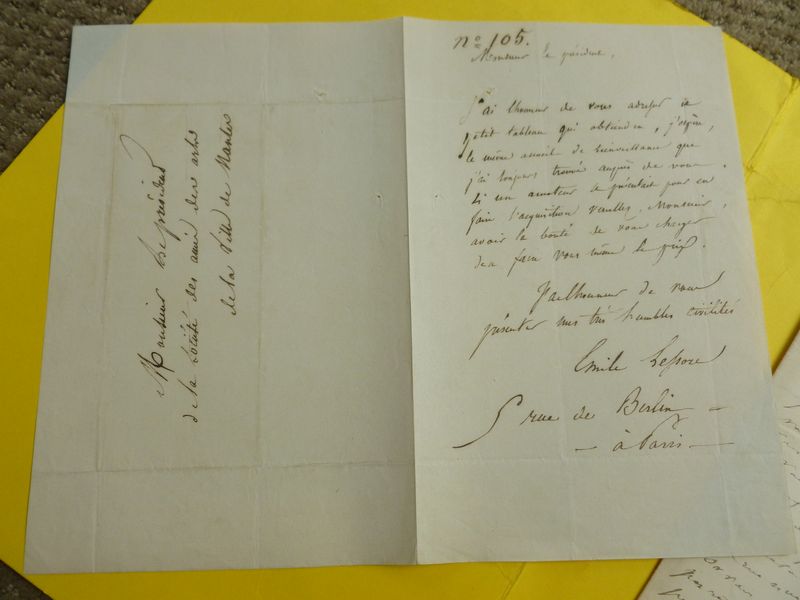 Monsieur Le président
de la Société des amis des arts
de la Ville de Nantes
n° 105.
Monsieur le président,
J'ai l'honneur de vous adresser ce
petit tableau qui obtiendra, j'espère,
le même accueil de bienveillance que
j'ai toujours trouvé auprès de vous.
Si un amateur se présentait pour en
faire l'acquisition veuillez, Monsieur,
avoir la bonté de vous charger
d'en faire vous même le prix.
J'ai l'honneur de vous
présenter mes très humbles civilités
Emile Lessore
5 rue de Berlin
à Paris